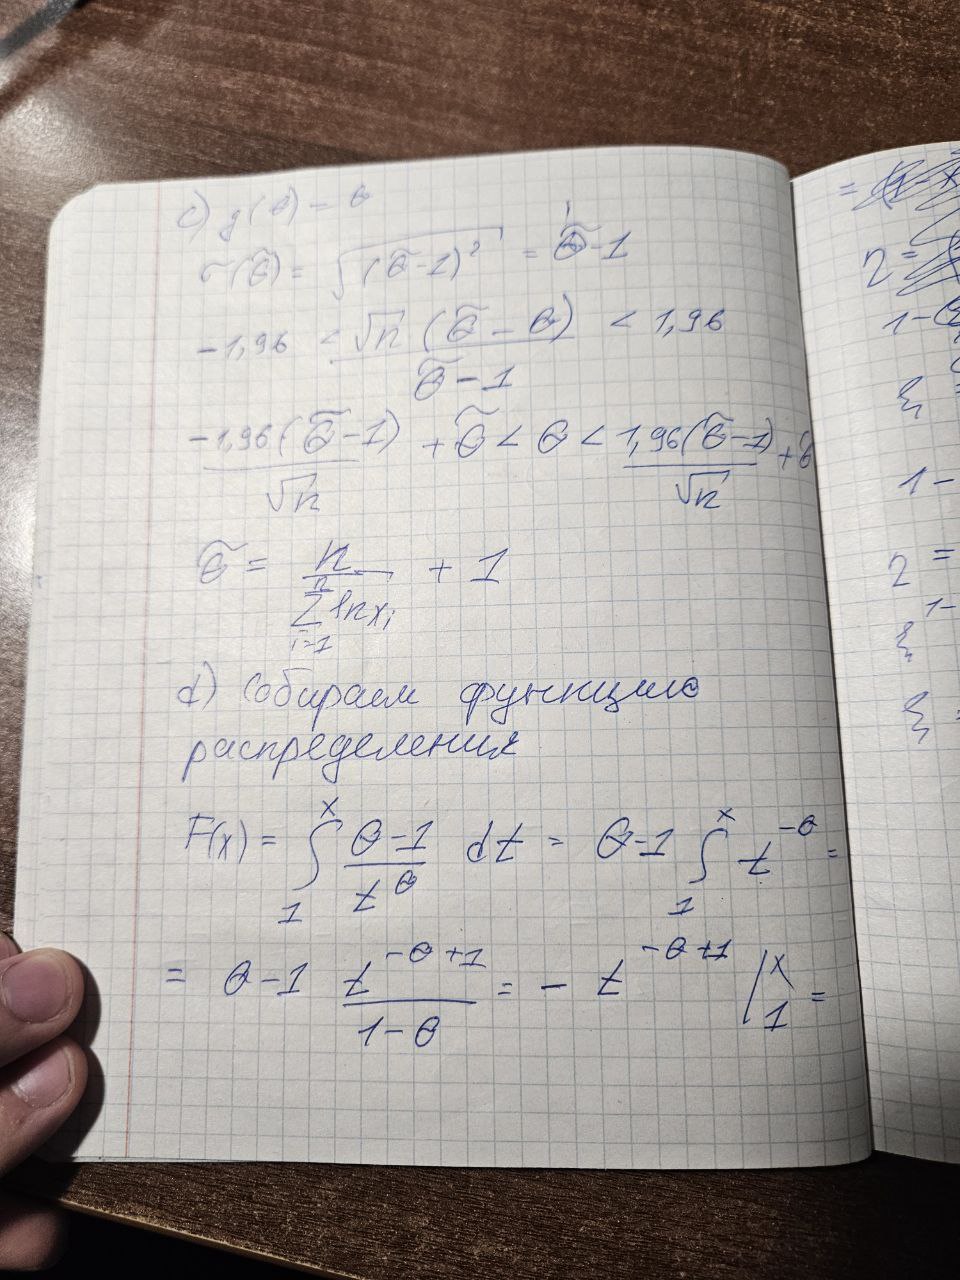 c) g(θ) = θ
σ(θ̃) = √((θ̃-1)²) = θ̃-1
-1,96 < √n (θ̃ - θ) / (θ̃ - 1) < 1,96
-1,96(θ̃-1) / √n + θ̃ < θ < 1,96(θ̃-1) / √n + θ̃
θ̃ = n / ∑_{i=1}^{n} ln x_i + 1
d) Собираем функцию
распределения
F(x) = ∫_1^x (θ-1) / t^θ dt = θ-1 ∫_1^x t^{-θ} =
= θ-1 t^{-θ+1} / (1-θ) = - t^{-θ+1} |_1^x =
=
η =
1-
ξ =
1-
η =
1-
ξ
ξ =